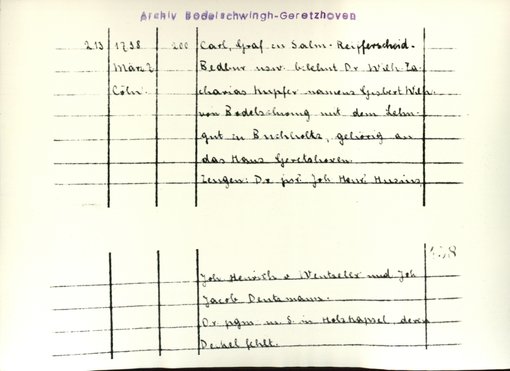 Archiv Bodelschwingh-Geretzhoven
213 1738 200 Carl, Graf zu Salm-Reifferscheid-
März 2 Bedbur usw. belehnt Dr. Wilh. Za-
Cöln. charias Kupfer namens Gisbert Wilh.
von Bodelschwing mit dem Lehn-
gut in Buchholtz, gehörig an
das Haus Geretshoven.
Zeugen: Dr. jur. Joh. Henr.
Joh. Heinrich v. und Joh.
Jacob Dentzmann.
Or. pgm. m. S. in Holzkapsel, deren
Deckel fehlt.